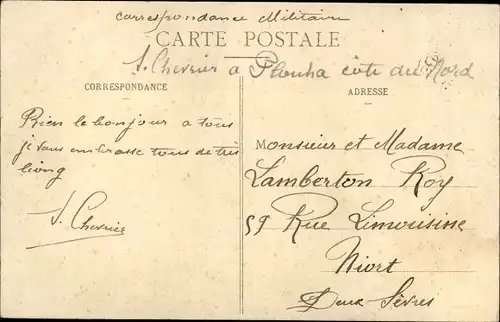 Correspondance Militaire
CARTE POSTALE
J. Chevrier a Plouha côte du Nord
CORRESPONDANCE
ADRESSE
Rien le bonjour a tous
je vous embrasse tous de très
loing
J. Chevrier
Monsieur et Madame
Lamberton Roy
59 Rue Limousine
Niort
Deux Sèvres